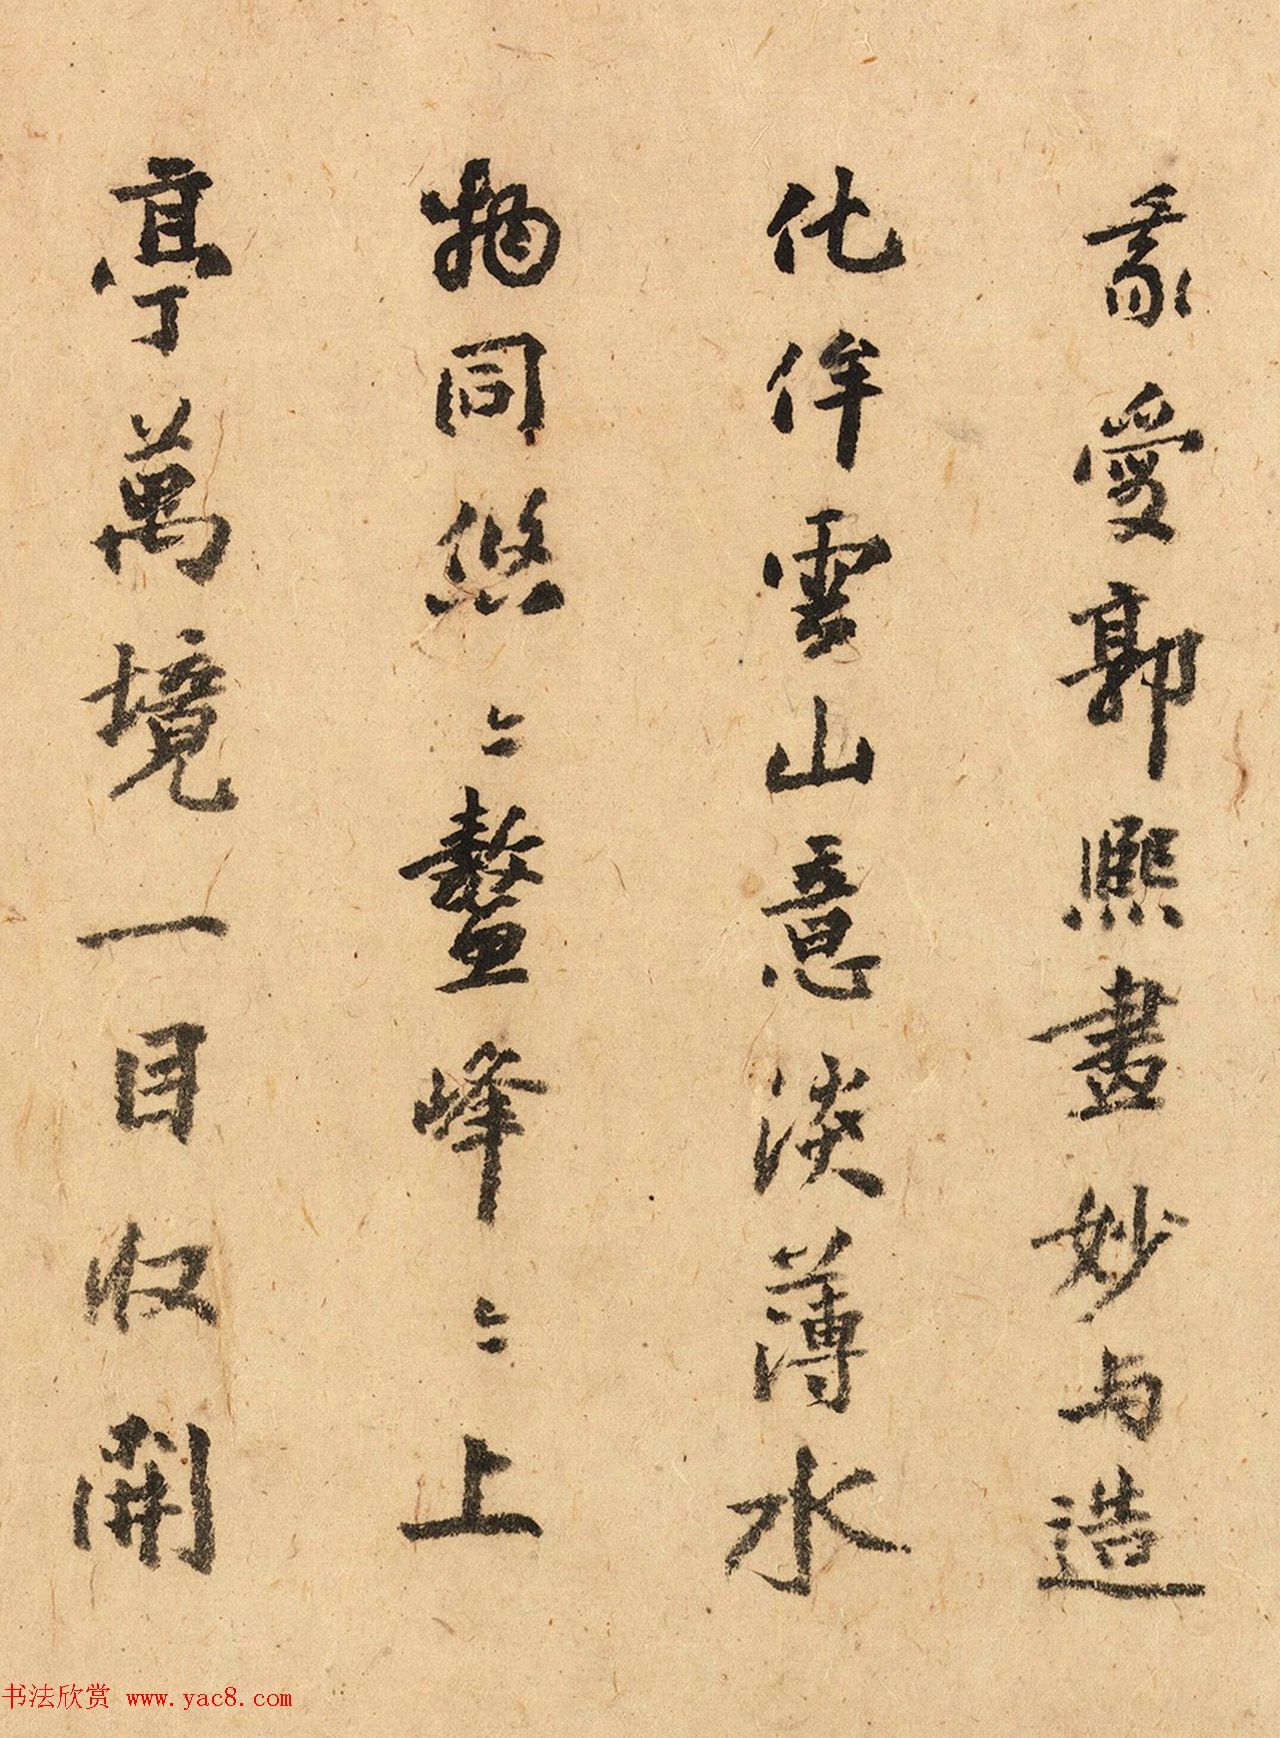 愛郭熙畫妙与造
化侔雲山意淡薄水
物同悠〻鼇峰〻上
亭萬境一目收開
书法欣赏 www.yac8.com